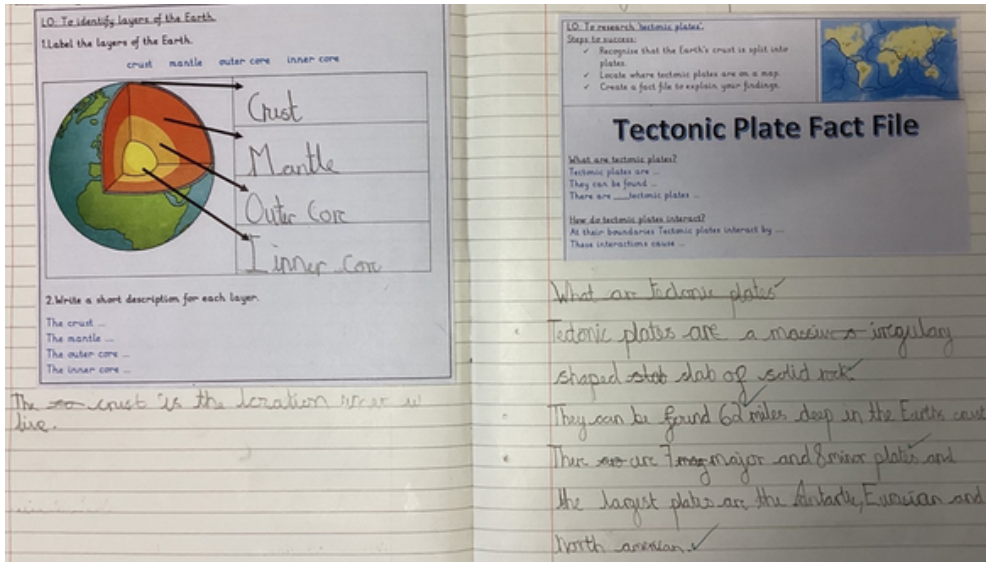 LO: To identify layers of the Earth.
1.Label the layers of the Earth.
crust mantle outer core inner core
Crust
Mantle
Outer Core
Inner Core
2.Write a short description for each layer.
The crust ...
The mantle ...
The outer core ...
The inner core ...
The crust is the location
live.
LO: To research 'tectonic plates'.
Steps to success:
✓ Recognise that the Earth's crust is split into
plates.
✓ Locate where tectonic plates are on a map.
✓ Create a fact file to explain your findings.
Tectonic Plate Fact File
What are tectonic plates?
Tectonic plates are ...
They can be found ...
There are ___tectonic plates ...
How do tectonic plates interact?
At their boundaries Tectonic plates interact by ...
These interactions cause ...
What are tectonic plates
Tectonic plates are a massive irregulary
shaped slab of solid rock.
They can be found 62 miles deep in the Earths crust
are 7 major and 8 minor plates and
the largest plates are the and
North american.